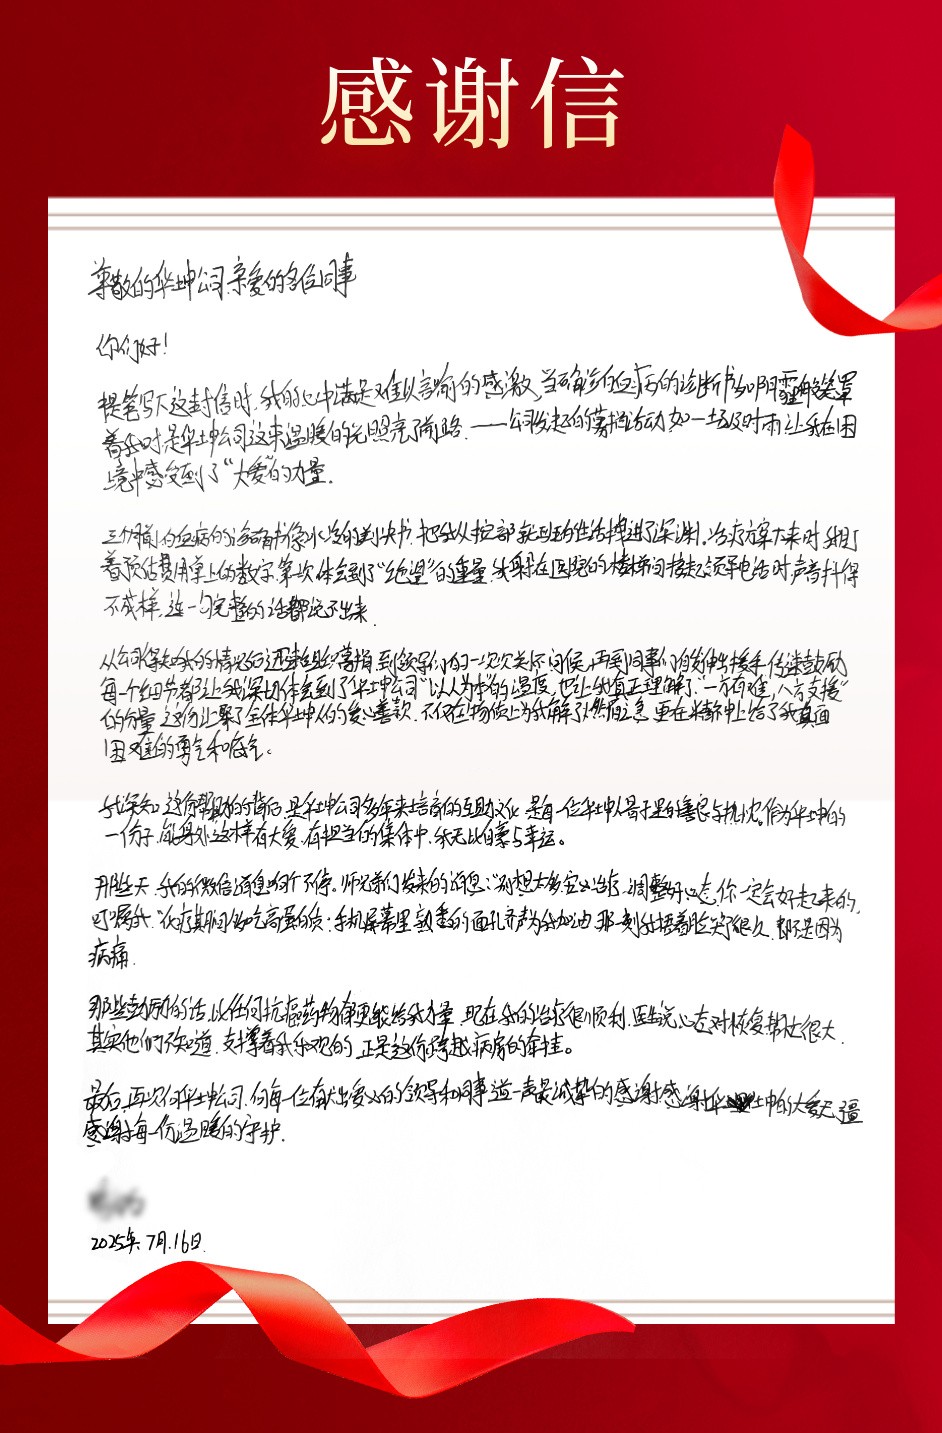 感谢信
尊敬的华坤公司、亲爱的各位同事
你们好！
提笔写下这封信时，我的心中满是难以言喻的感激。当确诊白血病的诊断书如阴霾般笼罩
着我时是华坤公司这束温暖的光照亮了前路——公司发起的募捐活动如一场及时雨让我在困
境中感受到了“大爱”的力量.
三个月前白血病的诊断书像冰冷的判决书，把我从按部就班的生活拽进了深渊。治疗方案下来时我盯
着预估费用单上的数字，第一次体会到了“绝望”的重量，我躲在医院的楼梯间接起领导电话时，声音抖得
不成样，连一句完整的话都说不出来.
从公司得知我的情况后迅速组织募捐，到领导们的一次次关怀问候，再到同事们自发伸出援手、传递鼓励
每一个细节都让我深切体会到了华坤公司“以人为本”的温度，也让我真正理解了“一方有难，八方支援”
的分量，这份汇聚了全体华坤人的爱心善款，不仅在物质上为我解了燃眉之急，更在精神上给了我直面
困难的勇气和底气。
我深知这份帮助的背后，是华坤公司多年来培育的互助文化，是每一位华坤人骨子里的善良与担当。作为华坤的
一份子，能身处这样有大爱、有担当的集体中，我无比自豪与幸运。
那些天，我的微信消息响个不停。师兄弟们发来的消息：“别想太多安心治疗，调整好心态，你一定会好起来的，
叮嘱我“化疗期间多吃高蛋白质；手机屏幕里熟悉的面孔齐声为我加油，那一刻我捂着脸哭了很久，都不是因为
病痛.
那些鼓励的话，比任何抗癌药物都更能给我力量，现在我的治疗很顺利，医生说心态对恢复帮助很大，
其实他们不知道，支撑着我乐观的，正是这份跨越病房的牵挂。
最后，再次向华坤公司、向每一位献出爱心的领导和同事道一声最诚挚的感谢！感谢华坤的大爱无疆
感谢每一份温暖的守护.
2025年7月16日.